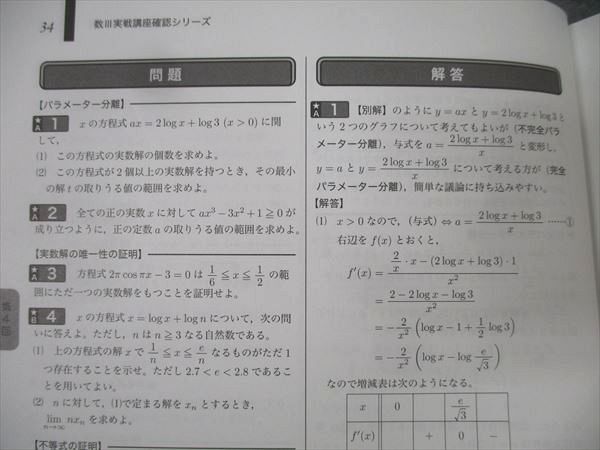 34
数Ⅲ実戦講座確認シリーズ
問題
【パラメーター分離】
★A 1 xの方程式 ax = 2 log x + log 3 (x > 0) に関
して,
(1) この方程式の実数解の個数を求めよ。
(2) この方程式が2個以上の実数解を持つとき, その最小
の解 t の取りうる値の範囲を求めよ。
★A 2 全ての正の実数 x に対して ax³ − 3x² + 1 ≧ 0 が
成り立つように, 正の定数 a の取りうる値の範囲を求めよ。
【実数解の唯一性の証明】
★A 3 方程式 2π cos πx − 3 = 0 は 1/6 ≦ x ≦ 1/2 の範
囲にただ一つの実数解をもつことを証明せよ。
★B 4 xの方程式 x = log x + log n について, 次の問
いに答えよ。ただし, n は n ≧ 3 なる自然数である。
(1) 上の方程式の解 x で 1/n ≦ x ≦ e/n なるものがただ1
つ存在することを示せ。ただし 2.7 < e < 2.8 であるこ
とを用いてよい。
(2) n に対して, (1)で定まる解を xₙ とするとき,
lim n→∞ nxₙ を求めよ。
【不等式の証明】
第4回
解答
★A 1 【別解】のように y = ax と y = 2 log x + log 3 と
いう2つのグラフについて考えてもよいが (不完全パラ
メーター分離), 与式を a = (2 log x + log 3)/x と変形し,
y = a と y = (2 log x + log 3)/x について考える方が (完全
パラメーター分離), 簡単な議論に持ち込みやすい。
【解答】
(1) x > 0 なので, (与式) ⇔ a = (2 log x + log 3)/x ……①
右辺を f(x) とおくと,
f′(x) = (2/x · x − (2 log x + log 3) · 1)/x²
= (2 − 2 log x − log 3)/x²
= −2/x² (log x − 1 + 1/2 log 3)
= −2/x² (log x − log e/√3)
なので増減表は次のようになる。
x 0 e/√3
f′(x) + 0 −